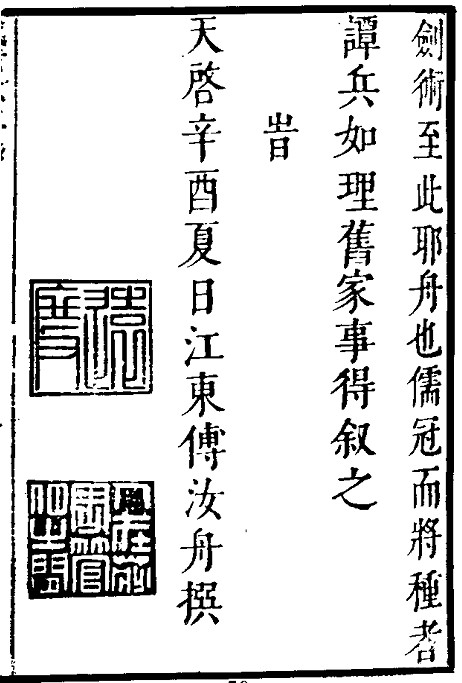 劍術至此耶舟也儒冠而將種者
譚兵如理舊家事得叙之
旹
天啓辛酉夏日江東傅汝舟撰
遠度